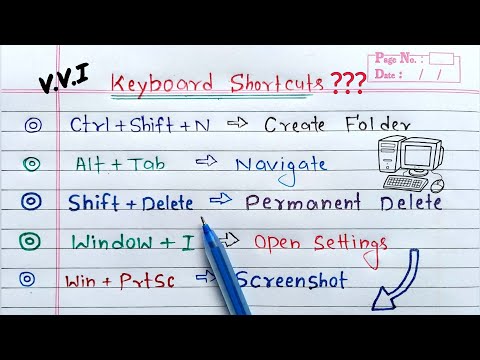 Page No.:
Date : / /
V.V.I Keyboard Shortcuts ???
Ctrl + Shift + N ⇨ Create Folder
Alt + Tab ⇨ Navigate
Shift + Delete ⇨ Permanent Delete
Window + I ⇨ Open Settings
Win + PrtSc ⇨ Screenshot